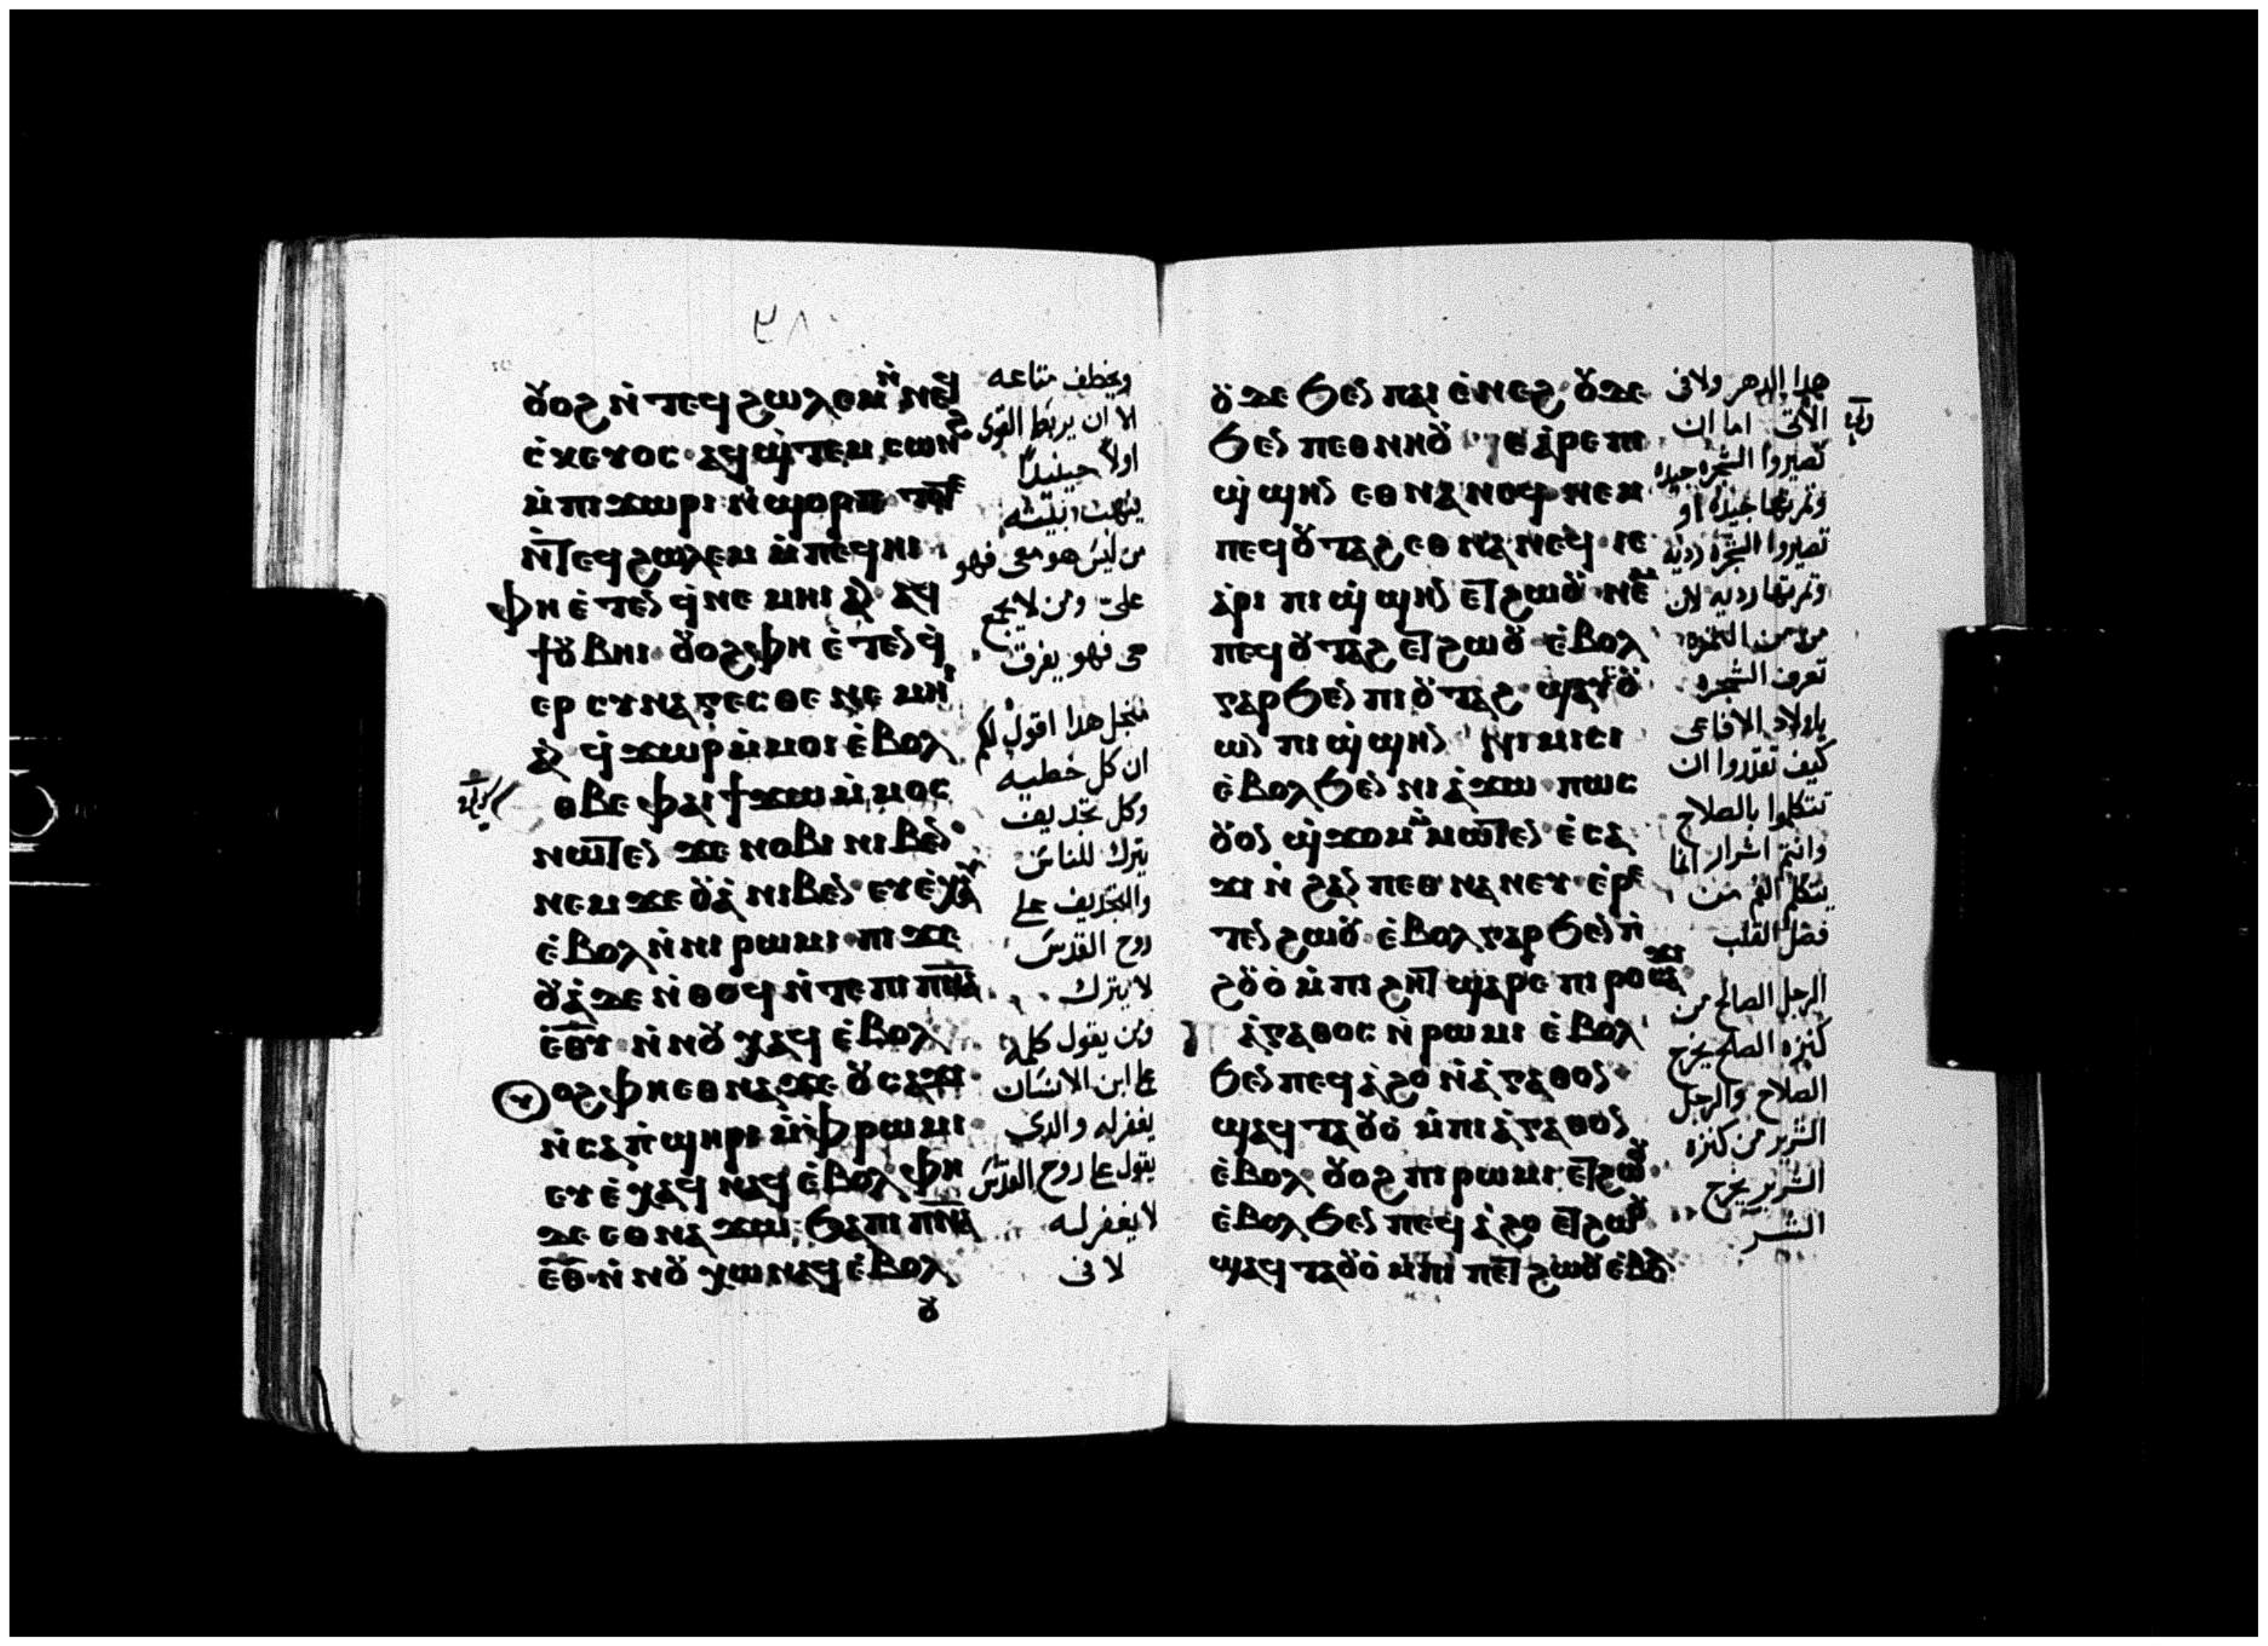 ٣٨
ⲟⲩⲟϩ ⲛ̀ⲧⲉϥϩⲱⲗⲉⲙ ⲛ̀ⲛⲉϥ
ⲥ̀ⲕⲉⲩⲟⲥ ⲁϥϣ̀ⲧⲉⲙ ⲥⲱⲛϩ
ⲙ̀ⲡⲓϫⲱⲣⲓ ⲛ̀ϣⲟⲣⲡ ⲧⲟⲧⲉ
ⲛ̀ⲧⲉϥϩⲱⲗⲉⲙ ⲙ̀ⲡⲉϥⲏⲓ
ⲫⲏ ⲉ̀ⲧⲉⲛϥ̀ⲛⲉⲙⲏⲓ ⲁⲛ ⲁϥ
ϯⲟⲩⲃⲏⲓ ⲟⲩⲟϩ ⲫⲏ ⲉ̀ⲧⲉⲛϥ̀
ⲉⲣⲥⲩⲛⲁⲅⲉⲥⲑⲉ ⲛⲉⲙⲏⲓ
ⲁⲛ ϥ̀ϫⲱⲣ ⲙ̀ⲙⲟⲓ ⲉ̀ⲃⲟⲗ
ⲑⲃⲉ ⲫⲁⲓ ϯϫⲱ ⲙ̀ⲙⲟⲥ
ⲛⲱⲧⲉⲛ ϫⲉ ⲛⲟⲃⲓ ⲛⲓⲃⲉⲛ
ⲛⲉⲙ ϫⲉⲟⲩⲁ̀ ⲛⲓⲃⲉⲛ ⲉⲩⲉ̀ⲭⲁⲩ
ⲉ̀ⲃⲟⲗ ⲛ̀ⲛⲓⲣⲱⲙⲓ ⲡⲓϫⲉ
ⲟⲩⲁ̀ ⲇⲉ ⲛ̀ⲑⲟϥ ⲛ̀ⲧⲉ ⲡⲓⲡ̅ⲛ̅ⲁ̅
ⲉ̅ⲑ̅ⲩ ⲛ̀ⲛⲟⲩⲭⲁϥ ⲉ̀ⲃⲟⲗ
ⲟⲩⲟϩ ⲫⲏ ⲉⲑⲛⲁϫⲉ ⲟⲩⲥⲁϫⲓ
ⲛ̀ⲥⲁ ⲡ̀ϣⲏⲣⲓ ⲙ̀ⲫⲣⲱⲙⲓ
ⲉⲩⲉ̀ⲭⲁϥ ⲛⲁϥ ⲉ̀ⲃⲟⲗ ⲫⲏ
ⲇⲉ ⲉⲑⲛⲁϫⲱ ϧⲁ ⲡⲓⲡ̅ⲛ̅ⲁ̅
ⲉ̅ⲑ̅ ⲛ̀ⲛⲟⲩⲭⲱ ⲛⲁϥ ⲉ̀ⲃⲟⲗ
ⲟⲩ
ويخطف متاعه
الا ان يربط القوى
اولاً حينيداً
ينهب بيته
من ليس هو معى فهو
علىّ ومن لا يجمع
معى فهو يفرق
منجل هدا اقول لكم
ان كل خطيه
وكل تجديف
يترك للناس
والتجديف على
روح القدس
لا يترك
ومن يقول كلمه
على ابن الانسان
يغفر له والدي
يقول على روح القدس
لا يغفر له
لا فى
ⲟⲩⲇⲉ ϧⲉⲛ ⲡⲁⲓ ⲉ̀ⲛⲉϩ ⲟⲩⲇⲉ
ϧⲉⲛ ⲡⲉⲑⲛⲏⲟⲩ ⲓⲉ ⲁ̀ⲣⲉ ⲡⲓ
ϣ̀ϣⲏⲛ ⲉⲑⲛⲁⲛⲉϥ ⲛⲉⲙ
ⲡⲉϥⲟⲩⲧⲁϩ ⲉⲑⲛⲁⲛⲉϥ ⲓⲉ
ⲁ̀ⲣⲓ ⲡⲓϣ̀ϣⲏⲛ ⲉⲧϩⲱⲟⲩ ⲛⲉⲙ
ⲡⲉϥⲟⲩⲧⲁϩ ⲉⲧϩⲱⲟⲩ ⲉ̀ⲃⲟⲗ
ⲅⲁⲣ ϧⲉⲛ ⲡⲓⲟⲩⲧⲁϩ ϣⲁⲩⲥⲟⲩ
ⲱⲛ ⲡⲓϣ̀ϣⲏⲛ ⲛⲓⲙⲓⲥⲓ
ⲉ̀ⲃⲟⲗ ϧⲉⲛ ⲛⲓⲁ̀ϫⲱ ⲡⲱⲥ
ⲟⲩⲟⲛ ϣ̀ϫⲟⲙ ⲙ̀ⲙⲱⲧⲉⲛ ⲉ̀ⲥⲁ
ϫⲓ ⲛ̀ϩⲁⲛ ⲡⲉⲑⲛⲁⲛⲉⲩ ⲉ̀ⲣⲉ
ⲧⲉⲛϩⲱⲟⲩ ⲉ̀ⲃⲟⲗ ⲅⲁⲣ ϧⲉⲛ ⲡ̀
ϩⲟⲩⲟ̀ ⲙ̀ⲡⲓϩⲏⲧ ϣⲁⲣⲉ ⲡⲓⲣⲟ ⲥⲁϫⲓ
ⲁ̀ⲅⲁⲑⲟⲥ ⲛ̀ⲣⲱⲙⲓ ⲉ̀ⲃⲟⲗ
ϧⲉⲛ ⲡⲉϥⲁ̀ϩⲟ ⲛ̀ⲁ̀ⲅⲁⲑⲟⲛ
ϣⲁϥⲧⲁⲟⲩⲟ̀ ⲙ̀ⲡⲓⲁ̀ⲅⲁⲑⲟⲛ
ⲉ̀ⲃⲟⲗ ⲟⲩⲟϩ ⲡⲓⲣⲱⲙⲓ ⲉⲧϩⲱⲟⲩ
ⲉ̀ⲃⲟⲗ ϧⲉⲛ ⲡⲉϥⲁ̀ϩⲟ ⲉⲧϩⲱⲟⲩ
ϣⲁϥⲧⲁⲟⲩⲟ̀ ⲙ̀ⲡⲓ ⲡⲉⲧϩⲱⲟⲩ ⲉ̀ⲃⲟⲗ
هدا الدهر ولا فى
الاتى اما ان
تصيروا الشجره جيده
وتمرتها جيده او
تصيروا الشجره رديه
وتمرتها رديه لان
من التمره
تعرف الشجره
يا اولاد الافاعى
كيف تقدروا ان
تتكلموا بالصلاح
وانتم اشرار انما
يتكلم الفم من
فضل القلب
الرجل الصالح من
كنزه الصالح يخرج
الصلاح والرجل
الشرير من كنزه
الشرير يخرج
الشر